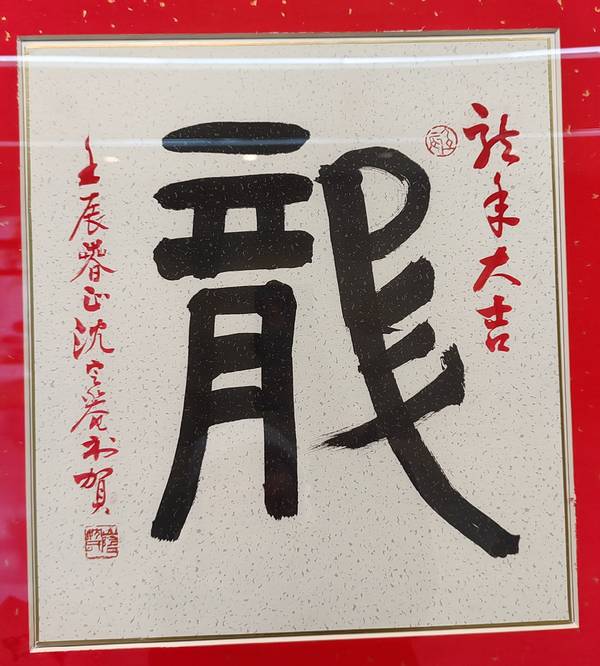 龍年大吉
龍
壬辰春正沈定菴書賀